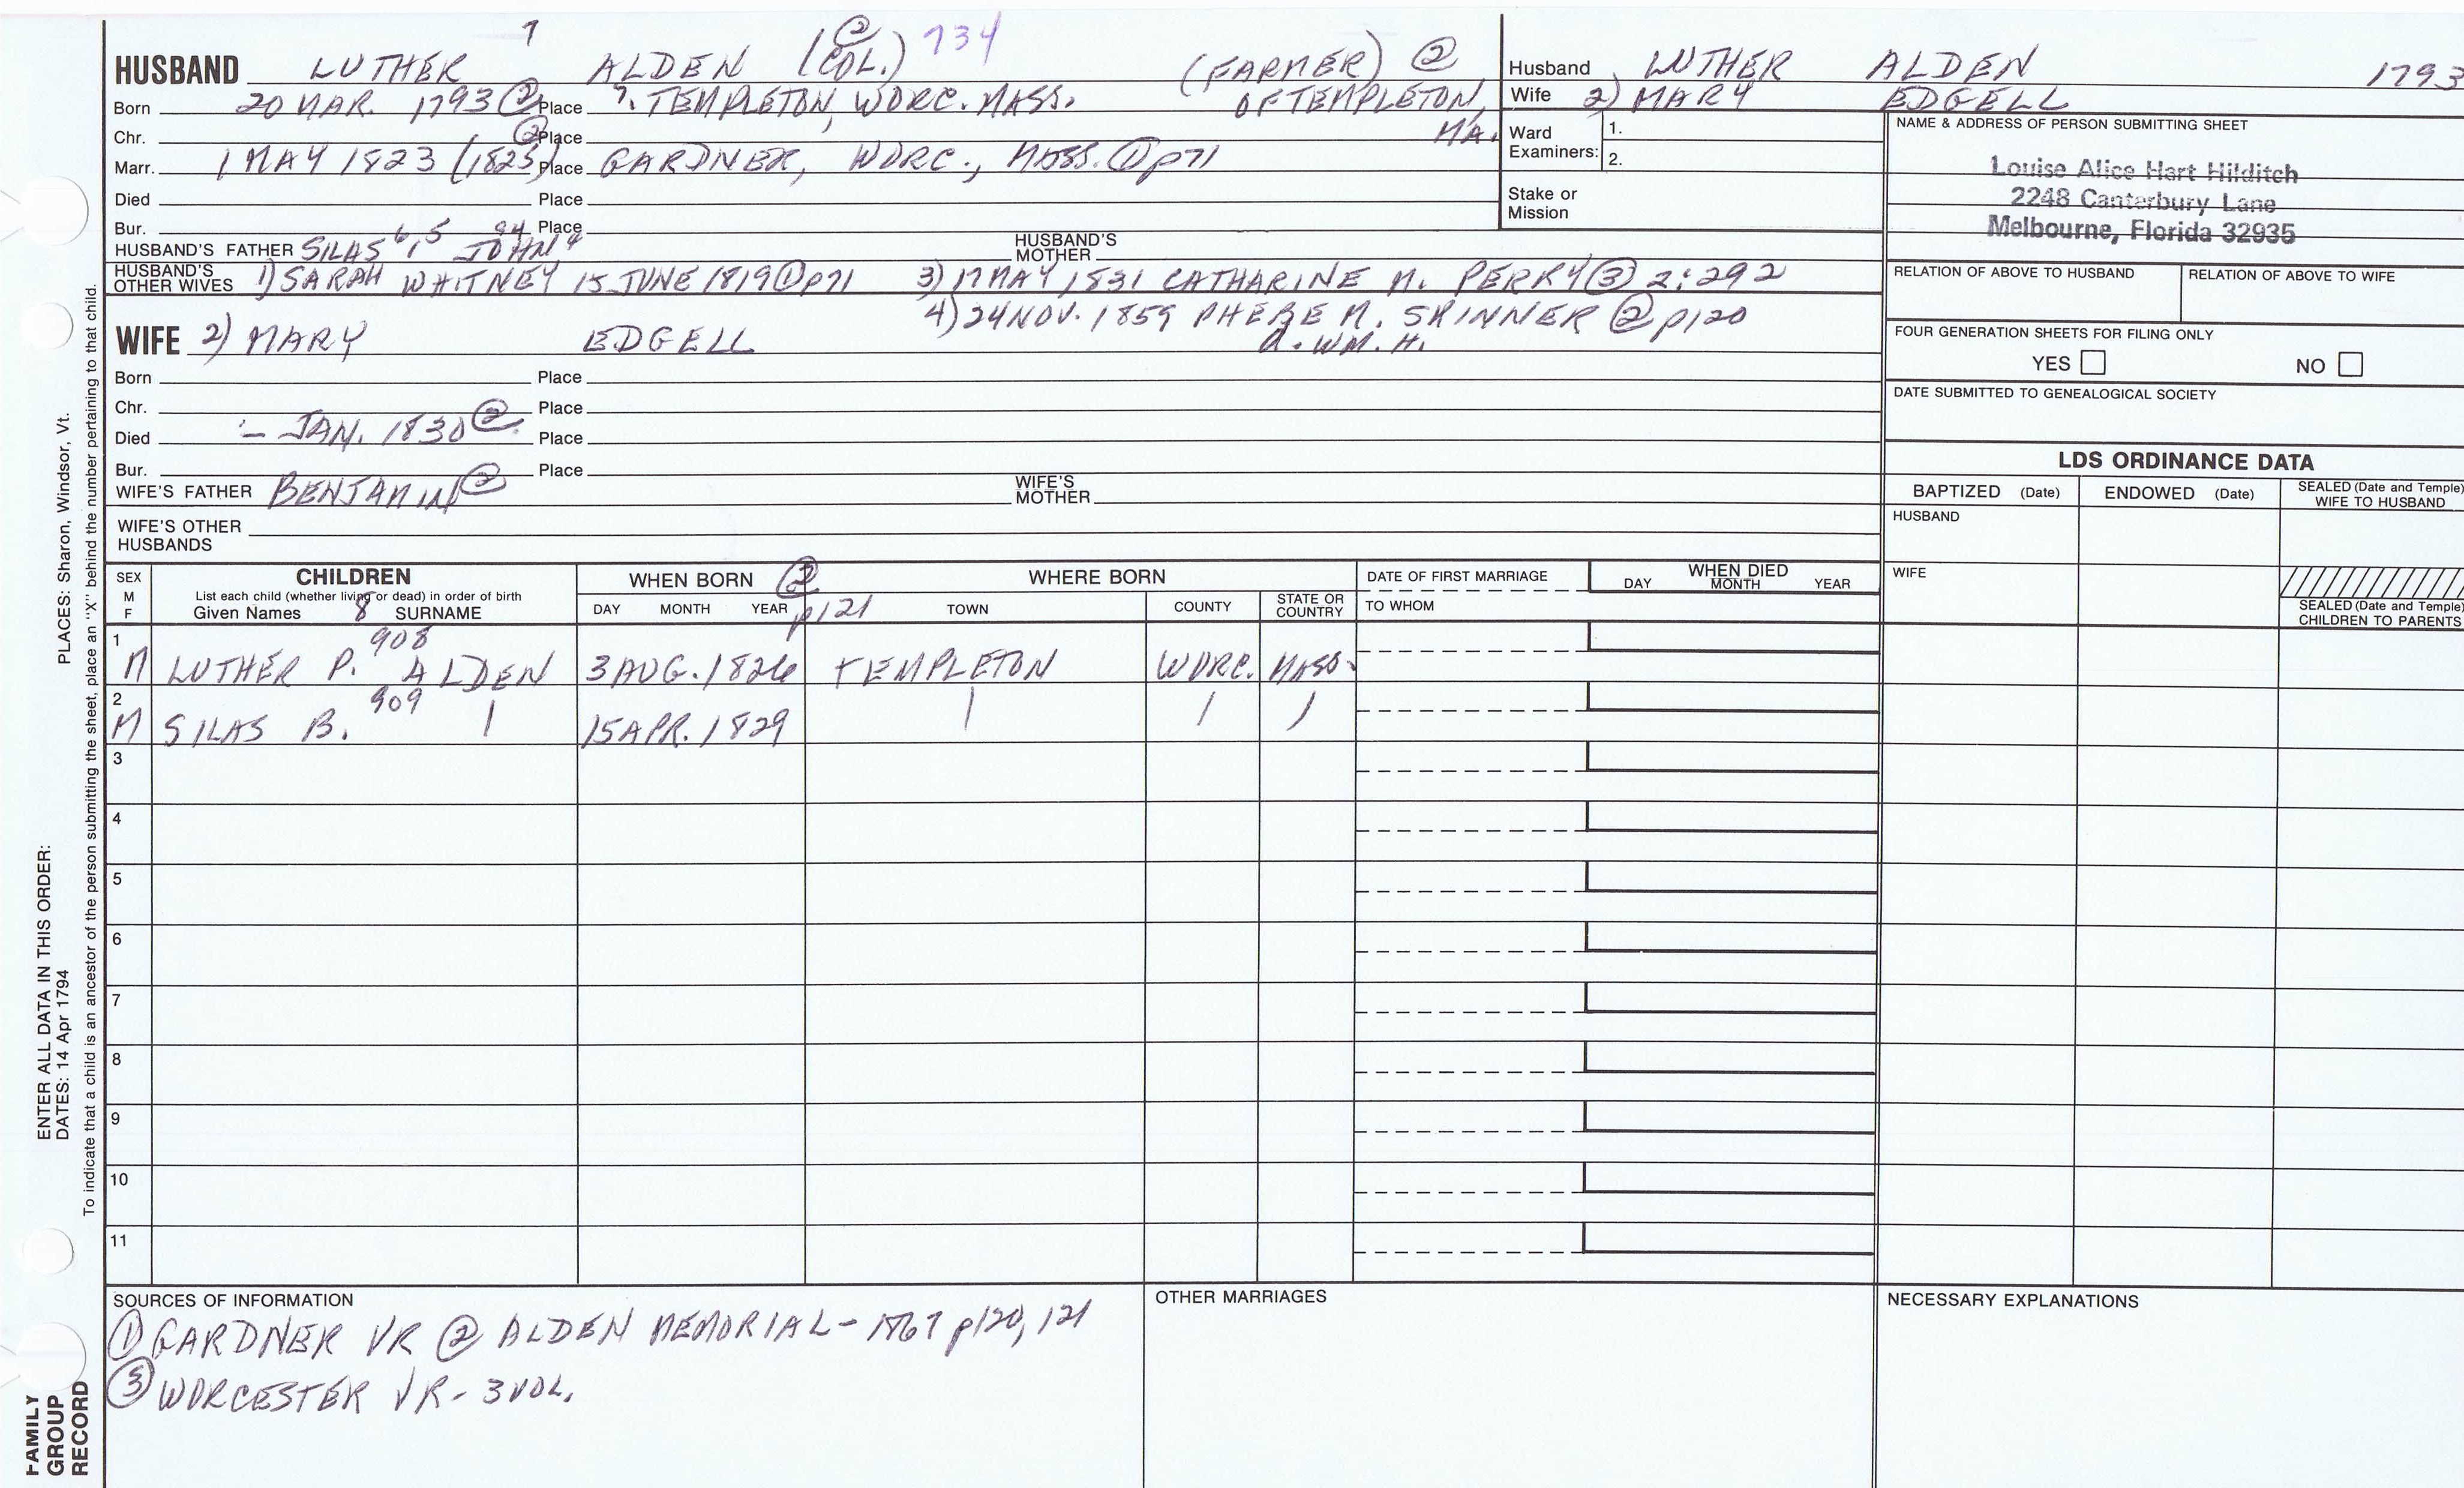 7 ② 734
HUSBAND LUTHER ALDEN (COL.) (FARMER) ②
Born 20 MAR. 1793 ② Place ?. TEMPLETON, WORC. MASS. OF TEMPLETON, MA.
Chr. ② Place
Marr. 1 MAY 1823 (1825) Place GARDNER, WORC., MASS. ① p71
Died Place
Bur. 94 Place
HUSBAND'S FATHER SILAS 6,5 JOHN 4 HUSBAND'S MOTHER
HUSBAND'S OTHER WIVES 1) SARAH WHITNEY 15 JUNE 1819 ① p71 3) 17 MAY 1831 CATHARINE M. PERRY ③ 2:292
4) 24 NOV. 1859 PHEBE M. SKINNER ② p120
d. WM. H.
WIFE 2) MARY EDGELL
Born Place
Chr. Place
Died – JAN. 1830 ② Place
Bur. Place
WIFE'S FATHER BENJAMIN ② WIFE'S MOTHER
WIFE'S OTHER HUSBANDS
Husband LUTHER ALDEN 1793
Wife 2) MARY EDGELL
Ward Examiners: 1.
2.
Stake or Mission
NAME & ADDRESS OF PERSON SUBMITTING SHEET
Louise Alice Hart Hilditch
2248 Canterbury Lane
Melbourne, Florida 32935
RELATION OF ABOVE TO HUSBAND RELATION OF ABOVE TO WIFE
FOUR GENERATION SHEETS FOR FILING ONLY
YES NO
DATE SUBMITTED TO GENEALOGICAL SOCIETY
LDS ORDINANCE DATA
BAPTIZED (Date) ENDOWED (Date) SEALED (Date and Temple) WIFE TO HUSBAND
HUSBAND
WIFE
SEALED (Date and Temple) CHILDREN TO PARENTS
SEX M F CHILDREN WHEN BORN ② p121 WHERE BORN DATE OF FIRST MARRIAGE WHEN DIED
List each child (whether living or dead) in order of birth
Given Names 8 SURNAME DAY MONTH YEAR TOWN COUNTY STATE OR COUNTRY TO WHOM DAY MONTH YEAR
1 908
M LUTHER P. ALDEN 3 AUG. 1826 TEMPLETON WORC. MASS.
2 909
M SILAS B. | 15 APR. 1829 | | |
3
4
5
6
7
8
9
10
11
SOURCES OF INFORMATION
① GARDNER VR ② ALDEN MEMORIAL - 1867 p120, 121
③ WORCESTER VR - 3 VOL.
OTHER MARRIAGES
NECESSARY EXPLANATIONS
ENTER ALL DATA IN THIS ORDER:
DATES: 14 Apr 1794 PLACES: Sharon, Windsor, Vt.
To indicate that a child is an ancestor of the person submitting the sheet, place an "X" behind the number pertaining to that child.
FAMILY
GROUP
RECORD